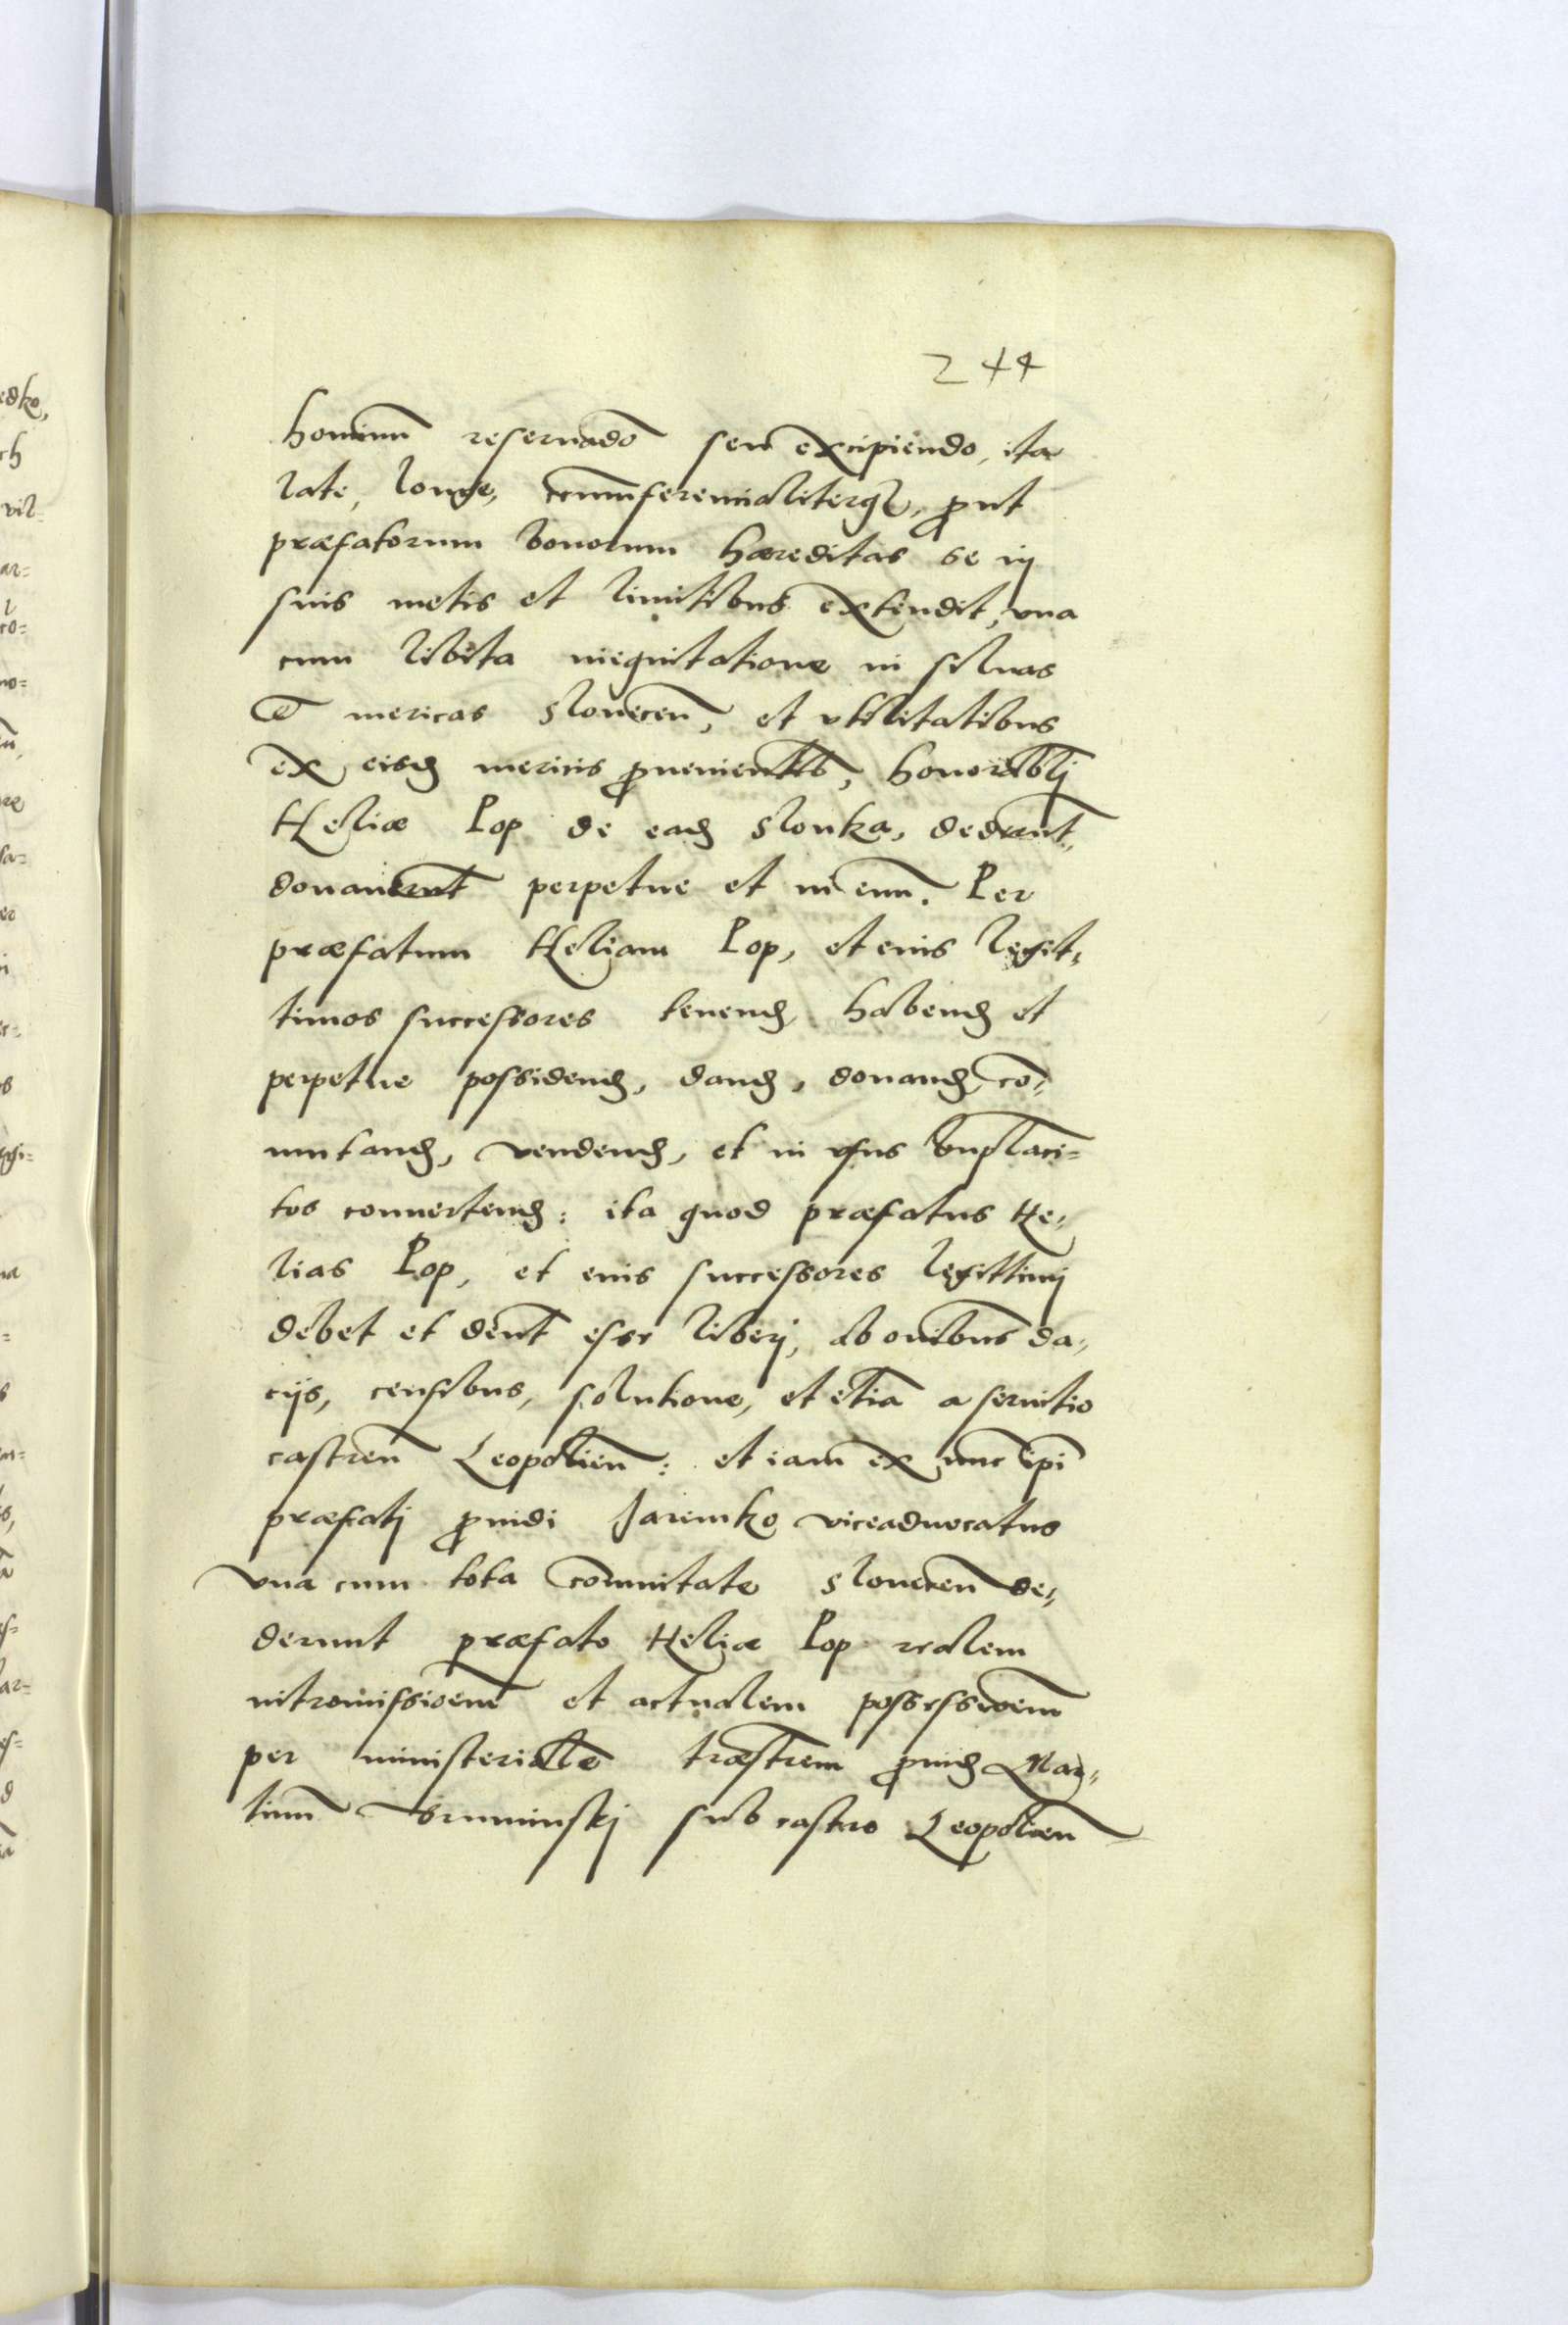 244
hominū reseruādo seu excipiendo, ita
late, longe, circumferencialiterq₃, prout
præfatorum bonorum hæreditas se in
suis metis et limitibus extendit, vna
cum libēta inequitatione in siluas
et mericas Slonecen̄, et vtilitatibus
ex eisd̄ mericis prouenientbs, honorabilj
Heliæ Pop de ead̄ Slonka, dederunt,
donauerunt perpetue et in eum. Per
præfatum Heliam Pop, et eius legit,
timos successores tenend̄ habend̄ et
perpetue possidend̄, dand̄, donand̄ co,
mutand̄, vendend̄, et in vsus bnplaci=
tos conuertend̄: ita quod præfatus He,
lias Pop, et eius successores legittimj
debet et debēnt esse liberj, ab omībus da,
cijs, censibus, solutione, et etiā a seruitio
castren̄ Leopolien̄: et iam ex nunc ipī
præfatj prouidi Jaremko viceaduocatus
vna cum tota cōmunitate Slonecen̄ de,
derunt præfato Heliæ Pop realem
intromissiōnem et actualem possessiōem
per ministerialē trāstrem prouid̄ Mar,
tinū Bruminskj sub castro Leopolien̄